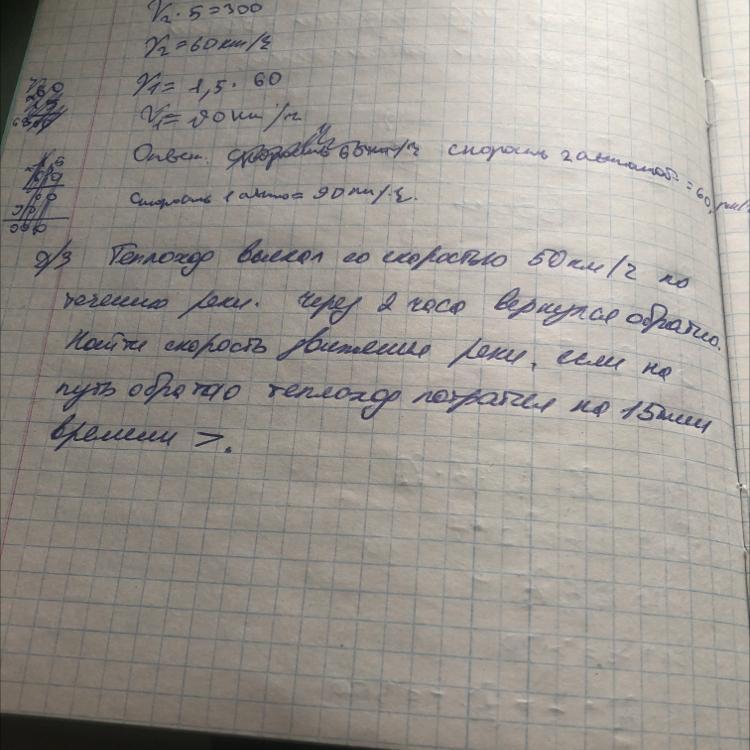 V₂ · 5 = 300
V₂ = 60 км/ч
V₁ = 1,5 · 60
V₁ = 90 км/ч
Ответ. скорость 2 автомоб = 60 км/ч
Скорость 1 авто = 90 км/ч.
д/з Теплоход выехал со скоростью 50 км/ч по
течению реки. Через 2 часа вернулся обратно.
Найти скорость движение реки, если на
путь обратно теплоход потратил на 15 мин
времени >.